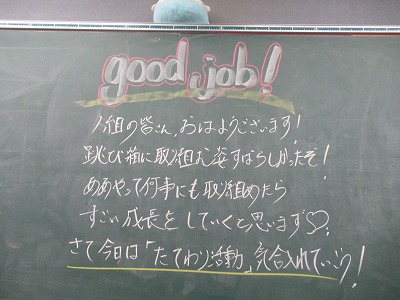 good job!
1組の皆さん、おはようございます!
跳び箱に取り組む姿すばらしかったぞ!
ああやって何事にも取り組めたら
すごい成長をしていくと思います♡!
さて今日は「たてわり活動」気合入れていこう!